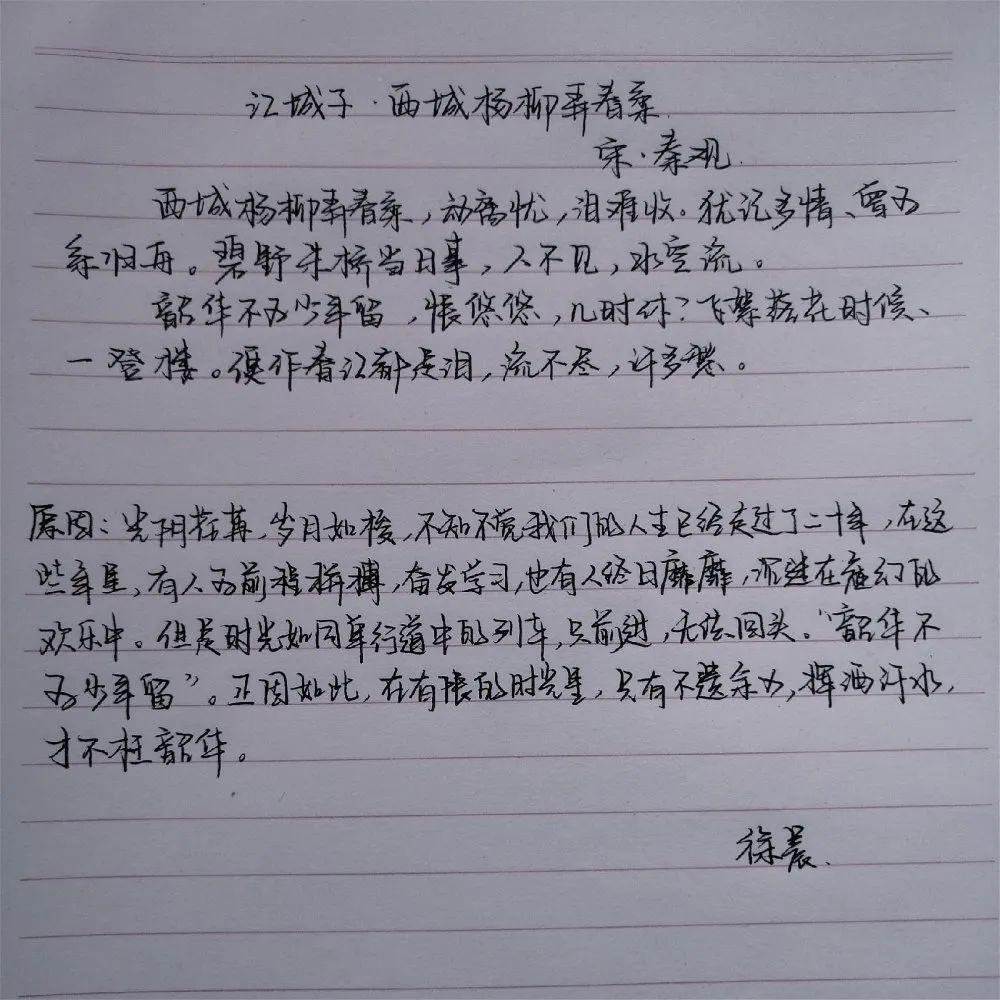 江城子·西城杨柳弄春柔
宋·秦观
西城杨柳弄春柔，动离忧，泪难收。犹记多情、曾为
系归舟。碧野朱桥当日事，人不见，水空流。
韶华不为少年留，恨悠悠，几时休？飞絮落花时候、
一登楼。便作春江都是泪，流不尽，许多愁。
原因：光阴荏苒，岁月如梭，不知不觉我们的人生已经走过了二十年，在这
些年里，有人为前程拼搏，奋发学习，也有人终日靡靡，沉迷在虚幻的
欢乐中。但是时光如同单行道中的列车，只前进，无法回头。“韶华不
为少年留”。正因如此，在有限的时光里，只有不遗余力，挥洒汗水，
才不枉韶华。
徐晨